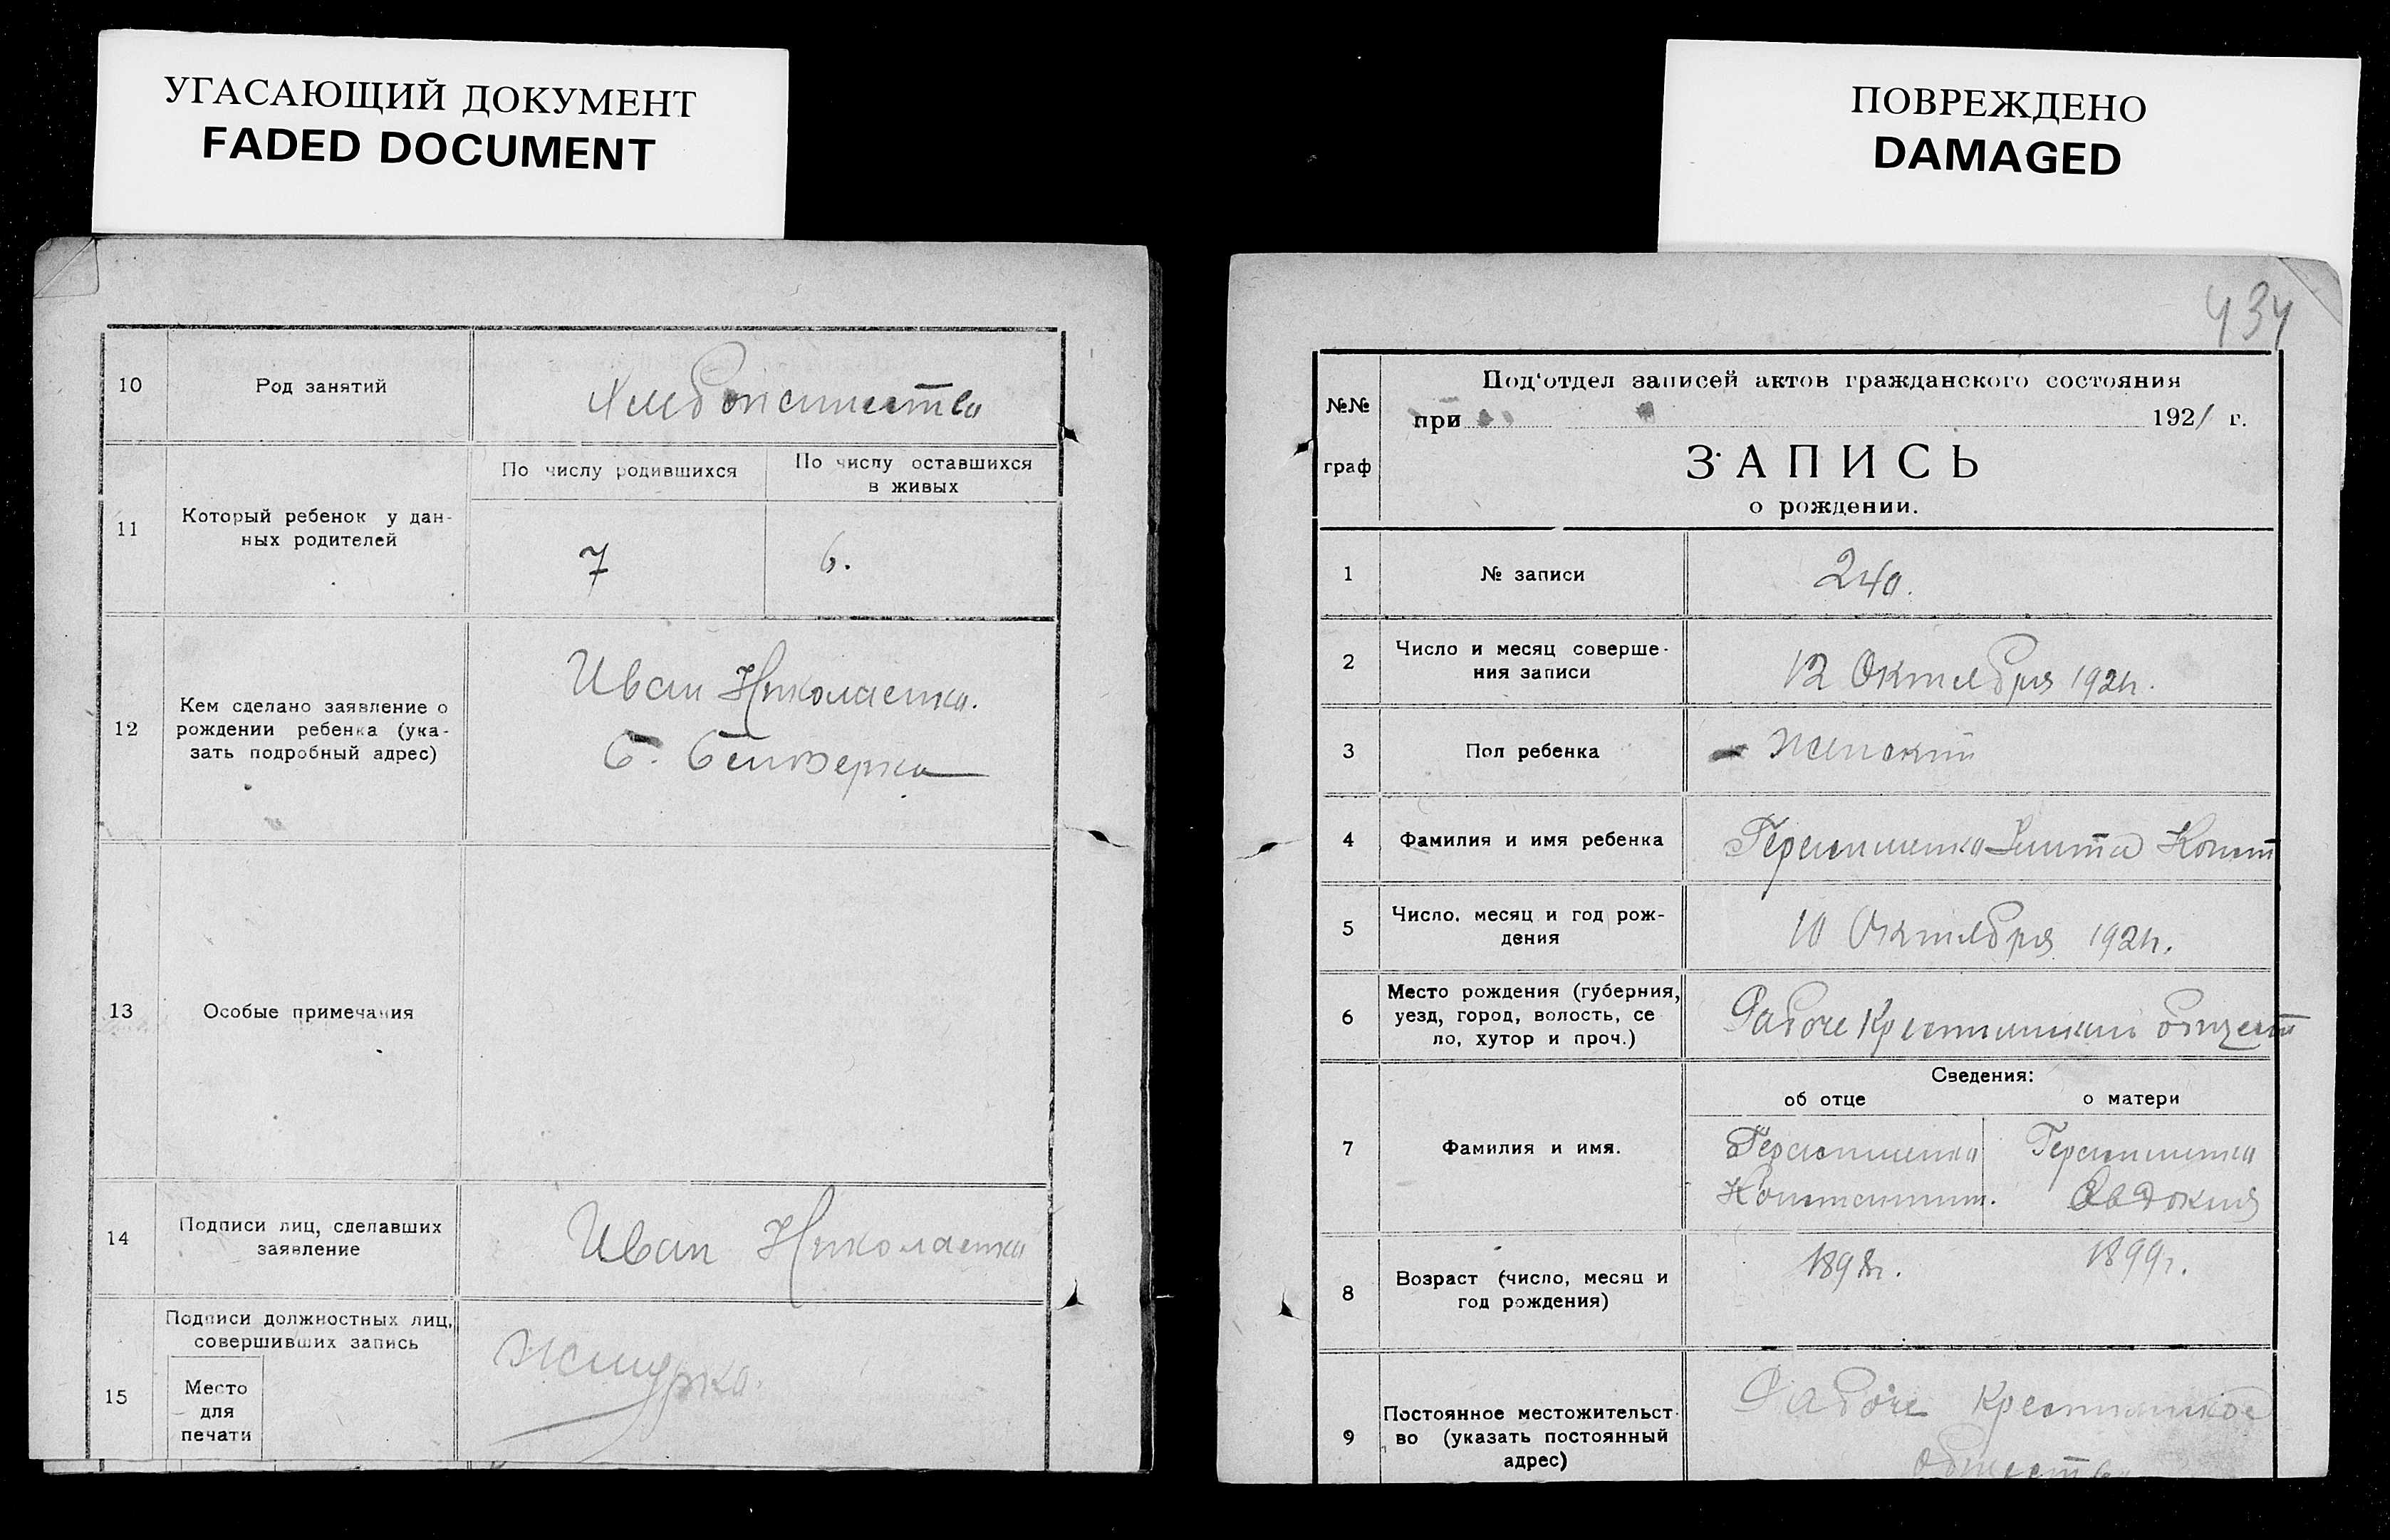 УГАСАЮЩИЙ ДОКУМЕНТ
FADED DOCUMENT
10
Род занятий
11
Который ребенок у дан-
ных родителей
По числу родившихся
По числу оставшихся
в живых
7
6.
12
Кем сделано заявление о
рождении ребенка (ука-
зать подробный адрес)
Иван Николаенко.
С.
13
Особые примечания
14
Подписи лиц, сделавших
заявление
Иван Николаенко
15
Подписи должностных лиц,
совершивших запись
Место
для
печати
ПОВРЕЖДЕНО
DAMAGED
434
№№
граф
Под'отдел записей актов гражданского состояния
при 1921 г.
ЗАПИСЬ
о рождении.
1
№ записи
240.
2
Число и месяц соверше-
ния записи
12 Октября 192
3
Пол ребенка
Женский
4
Фамилия и имя ребенка
Герасименко
5
Число, месяц и год рож-
дения
10 Октября 192
6
Место рождения (губерния,
уезд, город, волость, се
ло, хутор и проч.)
Рабоче Крестьянский общест
Сведения:
об отце
о матери
7
Фамилия и имя.
Герасименко
Константин.
Герасименко
Евдокия
8
Возраст (число, месяц и
год рождения)
1898г.
1899г.
9
Постоянное местожительст-
во (указать постоянный
адрес)
Рабоче Крестьянское
общество